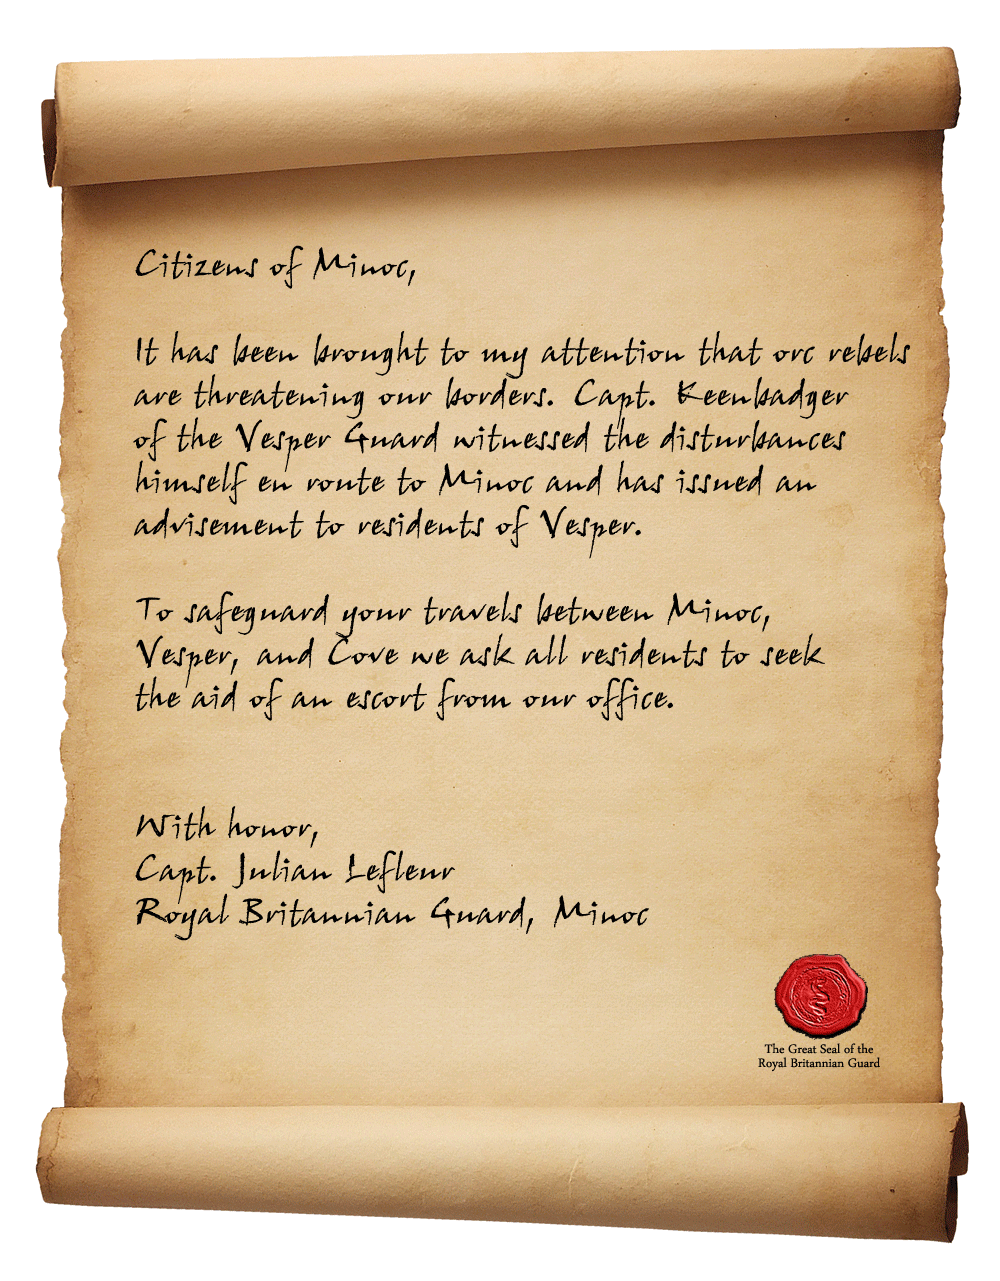 Citizens of Minoc,
It has been brought to my attention that orc rebels
are threatening our borders. Capt. Keenbadger
of the Vesper Guard witnessed the disturbances
himself en route to Minoc and has issued an
advisement to residents of Vesper.
To safeguard your travels between Minoc,
Vesper, and Cove we ask all residents to seek
the aid of an escort from our office.
With honor,
Capt. Julian Lefleur
Royal Britannian Guard, Minoc
The Great Seal of the
Royal Britannian Guard